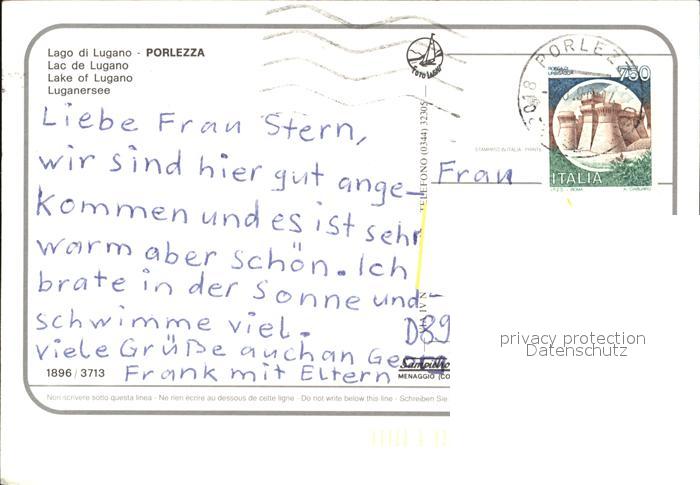 Lago di Lugano - PORLEZZA
Lac de Lugano
Lake of Lugano
Luganersee
FOTO
TELEFONO (0344) 32305
PORLEZZ
750
ITALIA
I.P.Z.S. - ROMA
Liebe Frau Stern,
wir sind hier gut ange-
kommen und es ist sehr
warm aber schön. Ich
brate in der Sonne und
schwimme viel.
viele Grüße auch an Ge
Frank mit Eltern
Frau
D89
privacy protection
Datenschutz
1896/3713
MENAGGIO (CO
Non scrivere sotto questa linea - Ne rien écrire au dessous de cette ligne - Do not write below this line - Schreiben Sie